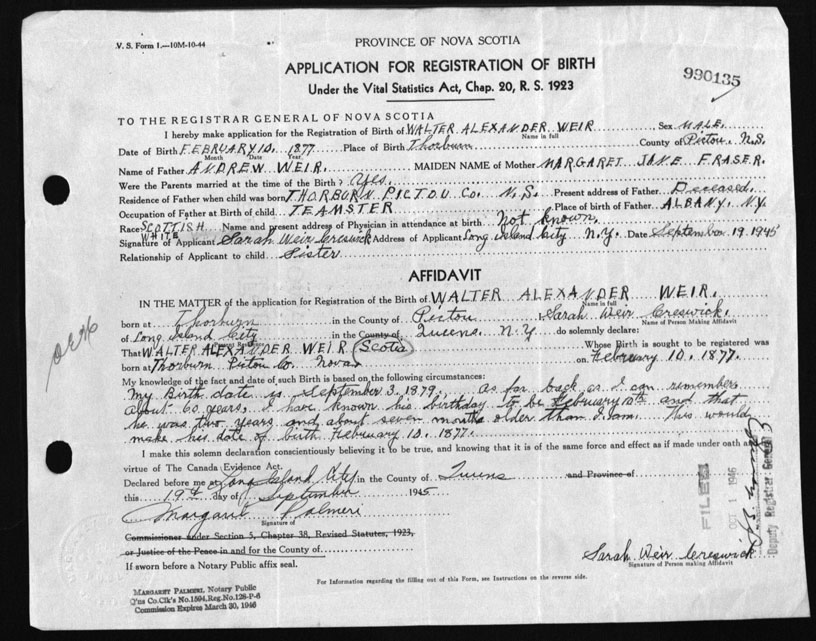 V. S. Form 1.—10M-10-44
PROVINCE OF NOVA SCOTIA
990135
APPLICATION FOR REGISTRATION OF BIRTH
Under the Vital Statistics Act, Chap. 20, R. S. 1923
TO THE REGISTRAR GENERAL OF NOVA SCOTIA
I hereby make application for the Registration of Birth of WALTER ALEXANDER WEIR, Sex MALE.
Name in full
Date of Birth FEBRUARY 10. 1877 Place of Birth Thorburn County of Pictou. N.S.
Month Date Year
Name of Father ANDREW WEIR. MAIDEN NAME of Mother MARGARET JANE FRASER.
Were the Parents married at the time of the Birth? Yes.
Residence of Father when child was born THORBURN PICTOU Co. N.S. Present address of Father Deceased.
Occupation of Father at Birth of child TEAMSTER Place of birth of Father ALBANY. N.Y.
Race SCOTTISH Name and present address of Physician in attendance at birth not known.
WHITE
Signature of Applicant Sarah Weir Creswick Address of Applicant Long Island City N.Y. Date September 19 1945
Relationship of Applicant to child Sister
AFFIDAVIT
IN THE MATTER of the application for Registration of the Birth of WALTER ALEXANDER WEIR.
Name in full
born at Thorburn in the County of Pictou Sarah Weir Creswick.
Name of Person Making Affidavit
of Long Island City in the County of Queens. N.Y. do solemnly declare:
That WALTER ALEXANDER WEIR Scotia Whose Birth is sought to be registered was
born at Thorburn Pictou Co. Nova on February 10. 1877.
My knowledge of the fact and date of such Birth is based on the following circumstances:
My Birth date is September 3. 1879. As far back as I can remember
about 60 years, I have known his birthday to be February 10th and that
he was two years and about seven months older than I am. This would
make his date of birth February 10. 1877.
I make this solemn declaration conscientiously believing it to be true, and knowing that it is of the same force and effect as if made under oath and
virtue of The Canada Evidence Act.
Declared before me at Long Island City in the County of Queens and Province of
this 19th day of September 1945
Margaret Palmeri
Signature of
Commissioner under Section 5, Chapter 38, Revised Statutes, 1923,
or Justice of the Peace in and for the County of
If sworn before a Notary Public affix seal.
FILED
OCT 1 1946
Deputy Registrar General
Sarah Weir Creswick
Signature of Person making Affidavit
For Information regarding the filling out of this Form, see Instructions on the reverse side.
MARGARET PALMERI, Notary Public
Q'ns Co.Clk's No.1594,Reg.No.128-P-6
Commission Expires March 30, 1946